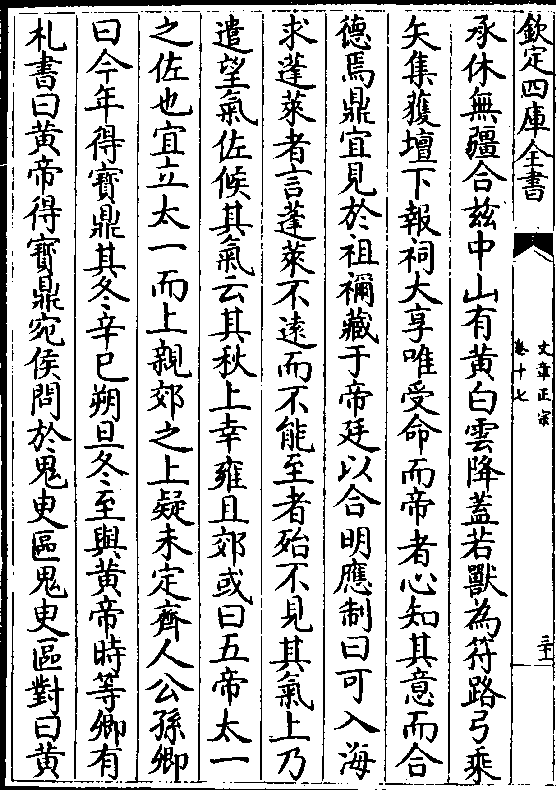 欽定四庫全書
文章正宗
卷十七
三十一
承休無疆合兹中山有黄白雲降蓋若獸為符路弓乘
矢集獲壇下報祠大享唯受命而帝者心知其意而合
德焉鼎宜見於祖禰藏于帝廷以合明應制曰可入海
求蓬萊者言蓬萊不遠而不能至者殆不見其氣上乃
遣望氣佐候其氣云其秋上幸雍且郊或曰五帝太一
之佐也宜立太一而上親郊之上疑未定齊人公孫卿
曰今年得寳鼎其冬辛巳朔旦冬至與黄帝時等卿有
札書曰黄帝得寳鼎宛侯問於鬼臾區鬼臾區對曰黄